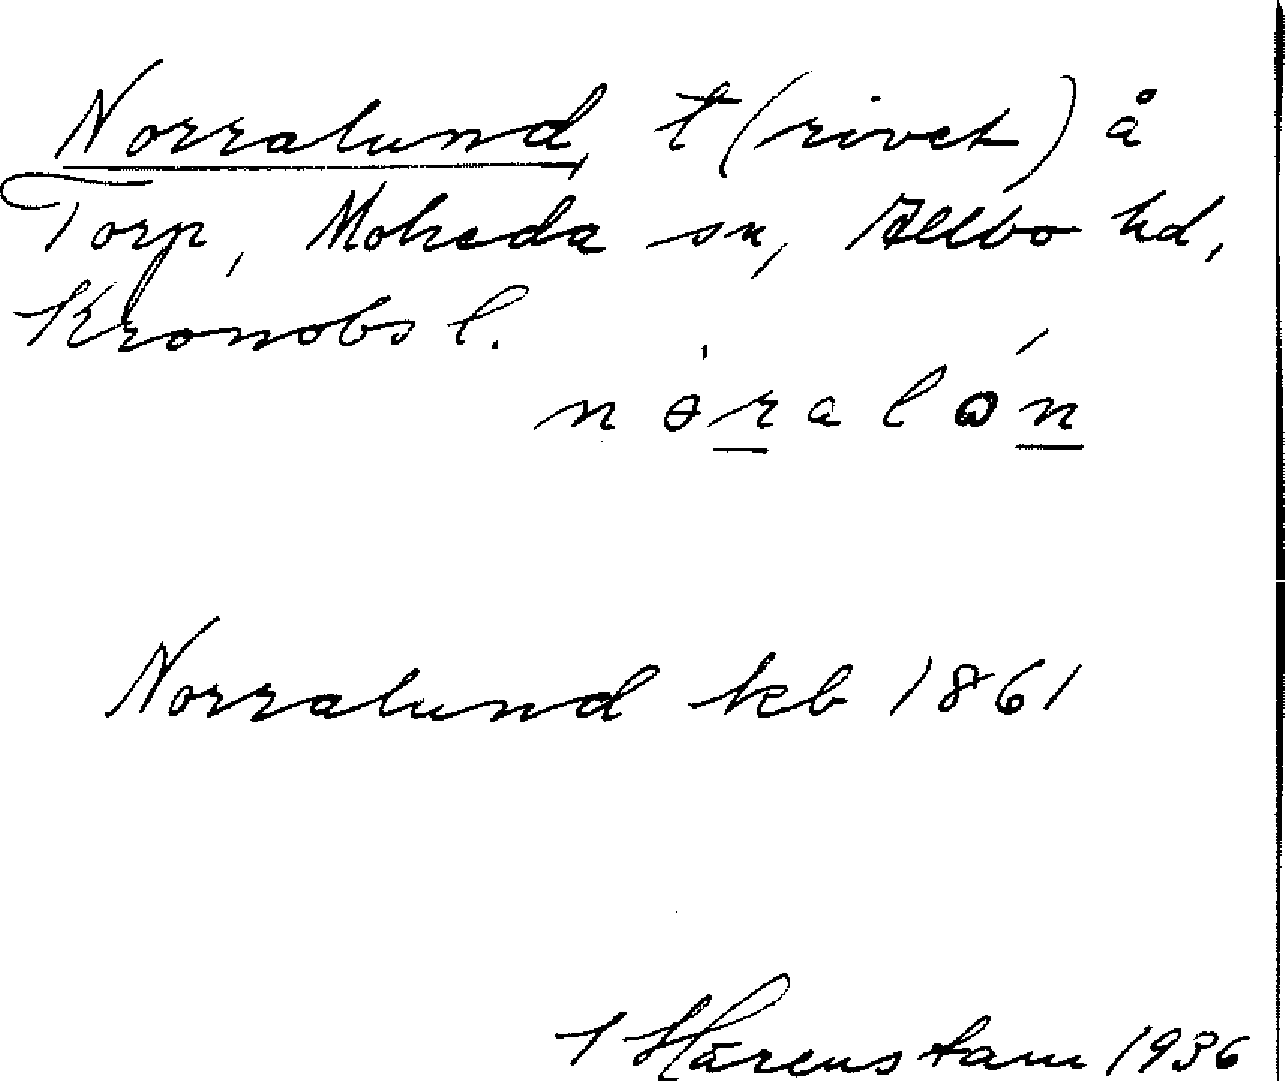 Norralund t (rivet) å
Torp, Moheda sn, Allbo hd,
Kronobs l.
nɵralɷn
Norralund kb 1861
Hårenstam 1936